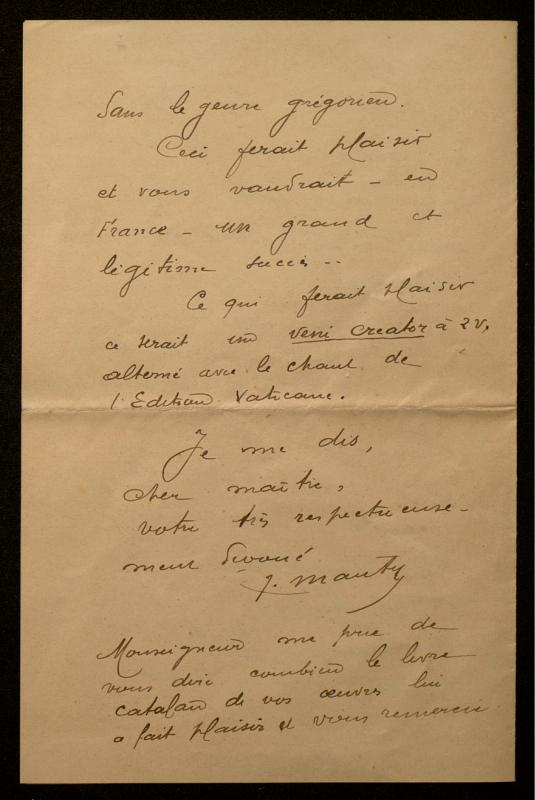 Dans le genre grégorien.
Ceci ferait plaisir
et vous vaudrait – en
France – un grand et
légitime succès –
Ce qui ferait plaisir
ce serait un Veni Creator à 2 v.
alterné avec le chant de
l'Edition Vaticane.
Je me dis,
cher maître,
votre très respectueuse-
ment dévoué
J. Mauty
Monseigneur me prie de
vous dire combien le livre
catalan de vos œuvres lui
a fait plaisir et vous remercie